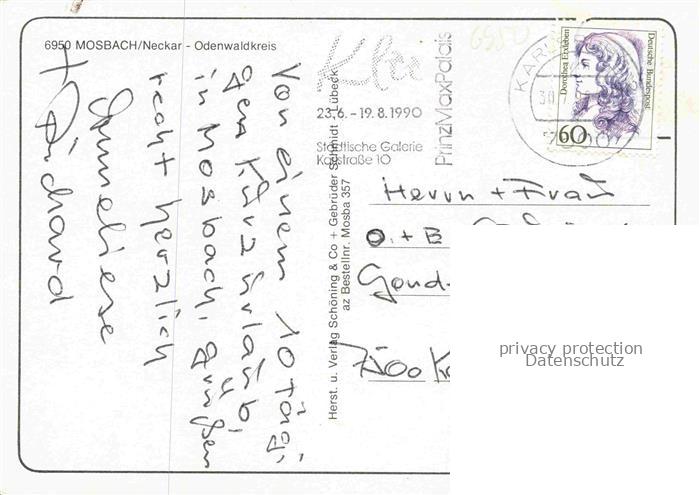 6950 MOSBACH/Neckar - Odenwaldkreis
Von einem 10 tägi-
gen Kurzurlaub,
in Mosbach, grüßen
recht herzlich
Annneliese
+ Richard
Herst. u. Verlag Schöning & Co + Gebrüder Schmidt - Lübeck
az Bestellnr. Mosba 357
6950
Klee
23.6. - 19.8.1990
Städtische Galerie
Karlstraße 10
PrinzMaxPalais
Dorothea Erxleben
Deutsche Bundespost
60
Herrn + Frau
O. + B
7500 K
privacy protection
Datenschutz